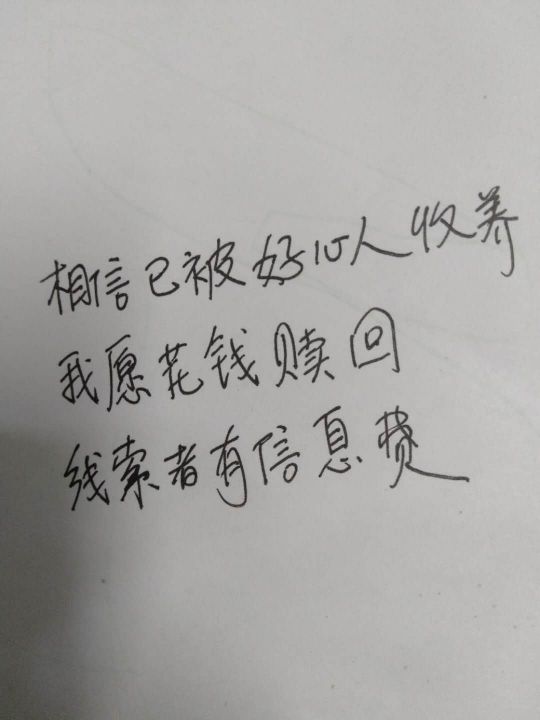 相信已被好心人收养
我愿花钱赎回
线索者有信息费